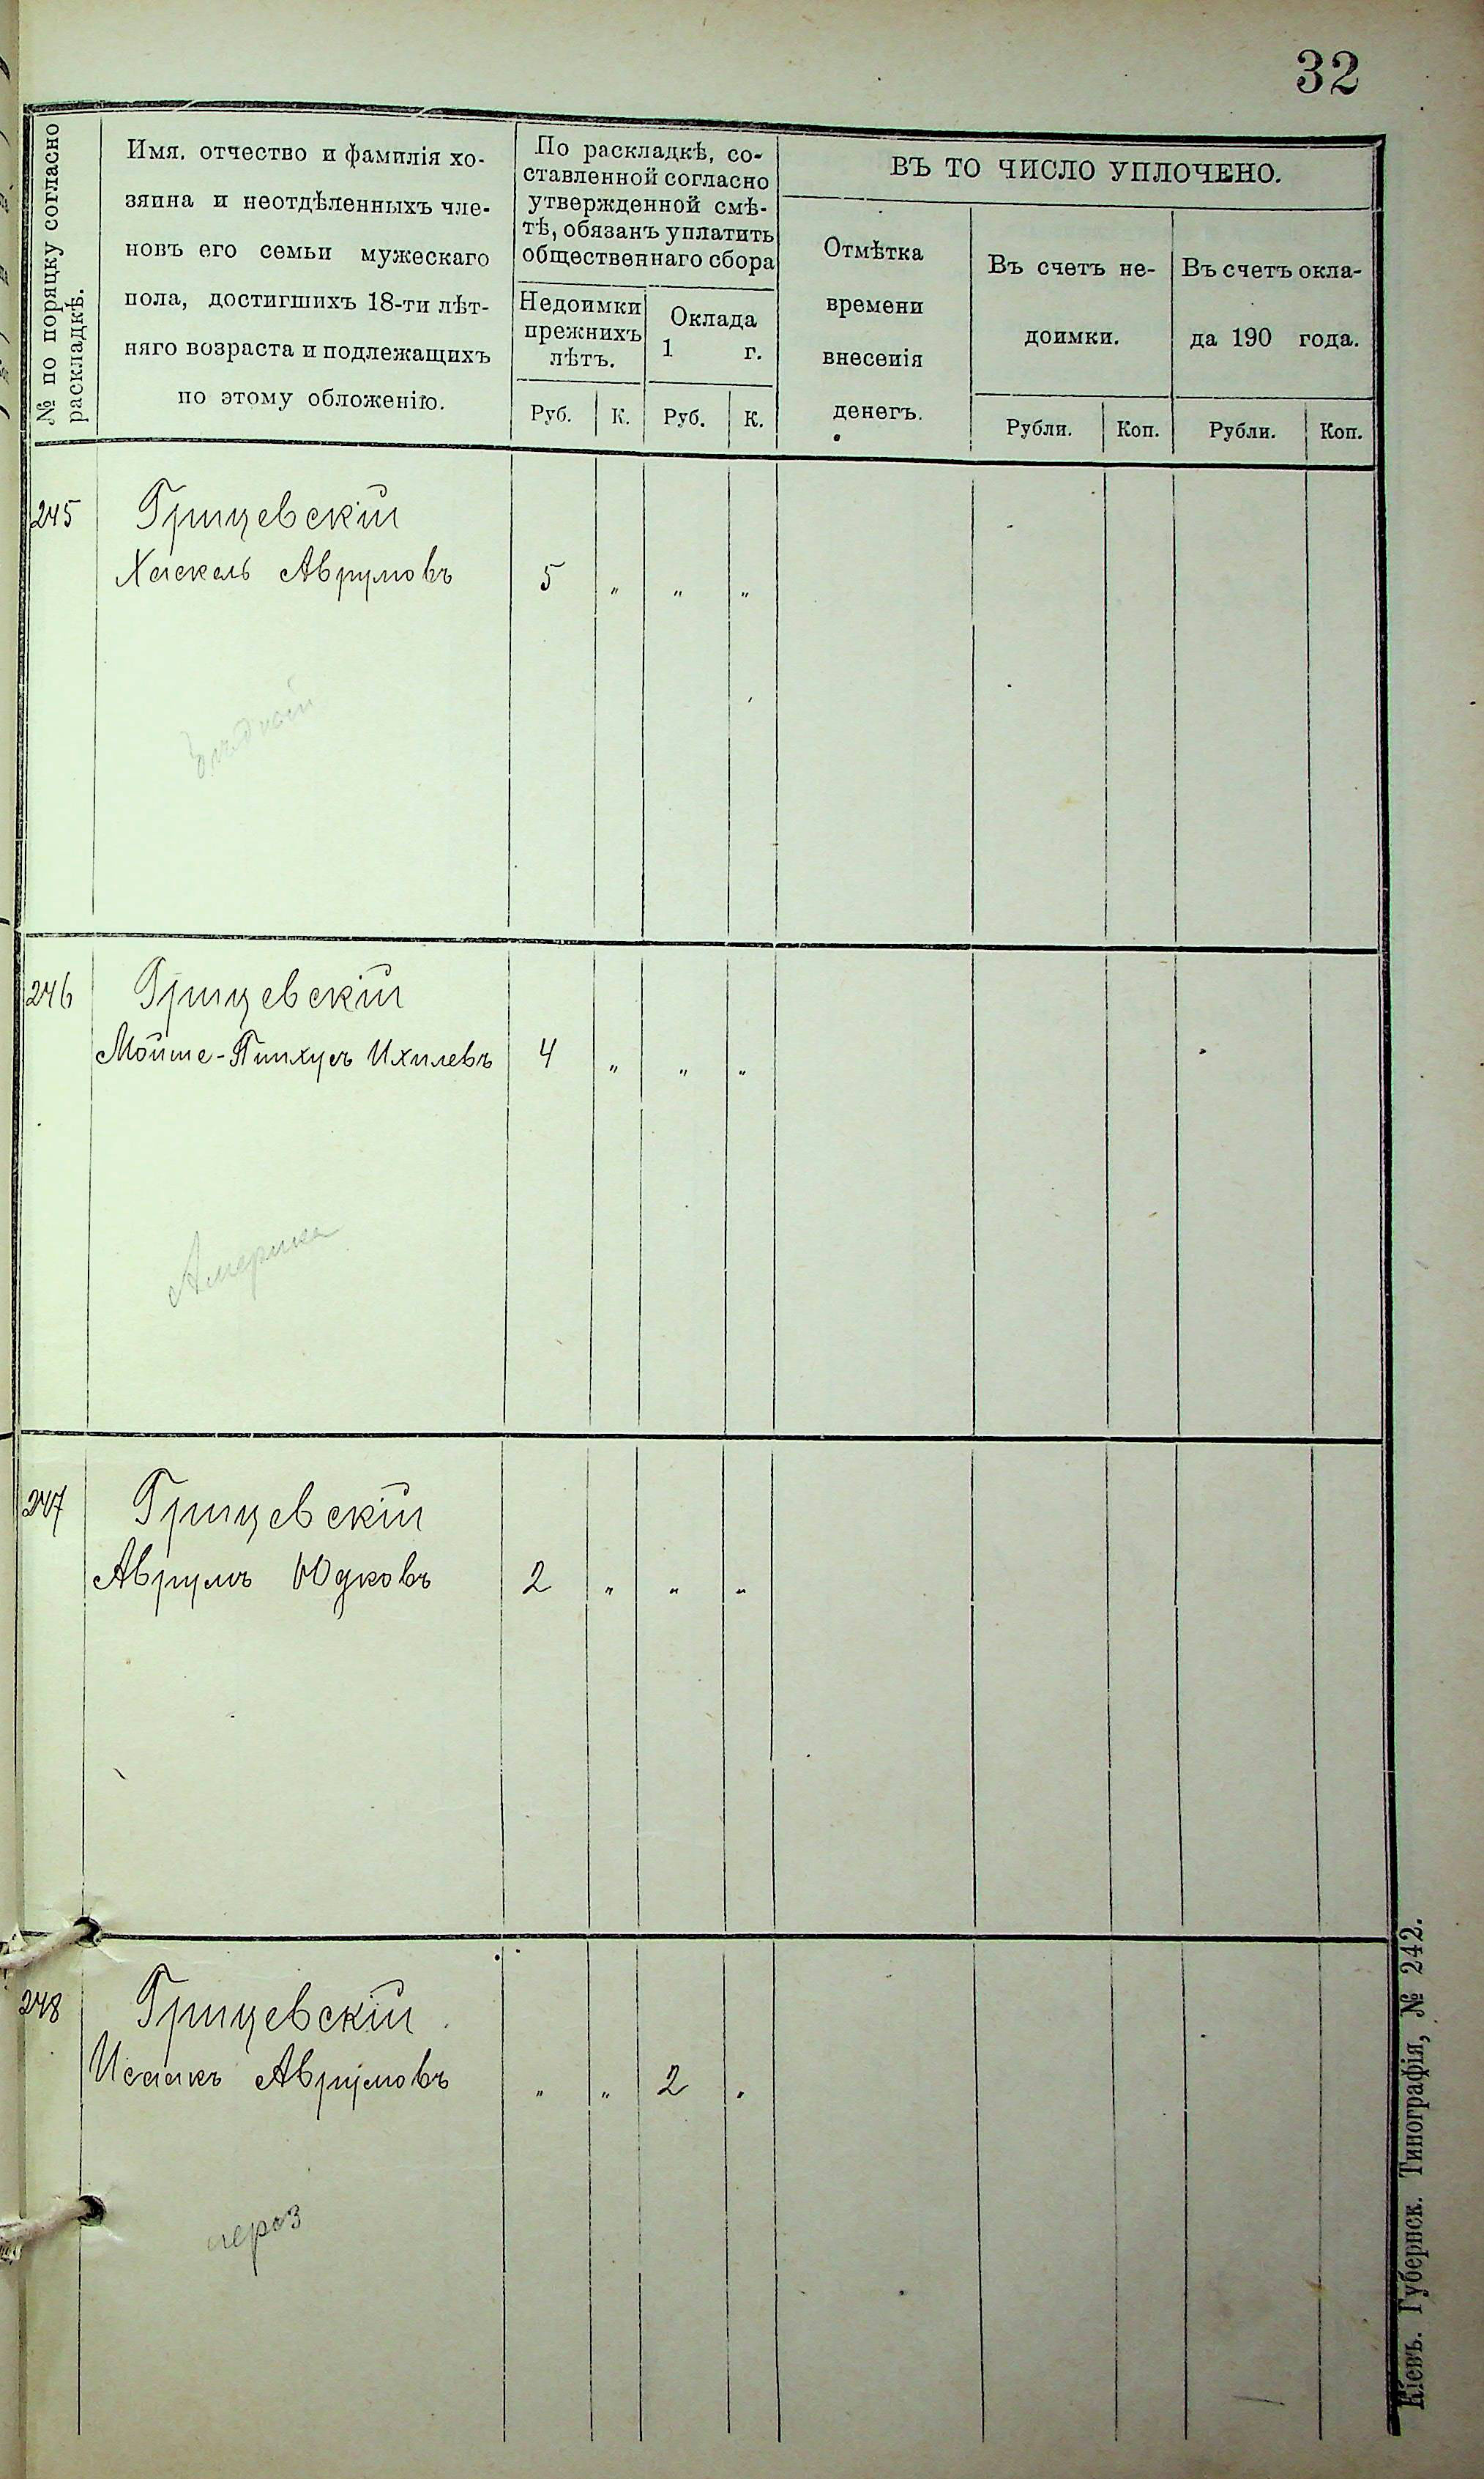 32
№ по порядку согласно
раскладкѣ.
Имя, отчество и фамилія хо-
зяина и неотдѣленныхъ чле-
новъ его семьи мужескаго
пола, достигшихъ 18-ти лѣт-
няго возраста и подлежащихъ
по этому обложенію.
По раскладкѣ, со-
ставленной согласно
утвержденной смѣ-
тѣ, обязанъ уплатить
общественнаго сбора
Недоимки
прежнихъ
лѣтъ.
Оклада
1 г.
Руб. К. Руб. К.
ВЪ ТО ЧИСЛО УПЛОЧЕНО.
Отмѣтка
времени
внесенія
денегъ.
Въ счетъ не-
доимки.
Въ счетъ окла-
да 190 года.
Рубли. Коп. Рубли. Коп.
245 Грицевскій
Хаскель Аврумовъ 5 " " "
Бѣдный
246 Грицевскій
Мойше-Пинхусъ Ихилевъ 4 " " "
Америка
247 Грицевскій
Аврумъ Юдковъ 2 " " "
248 Грицевскій
Исаакъ Аврумовъ " " 2 "
Кіевъ. Губернск. Типографія, № 242.